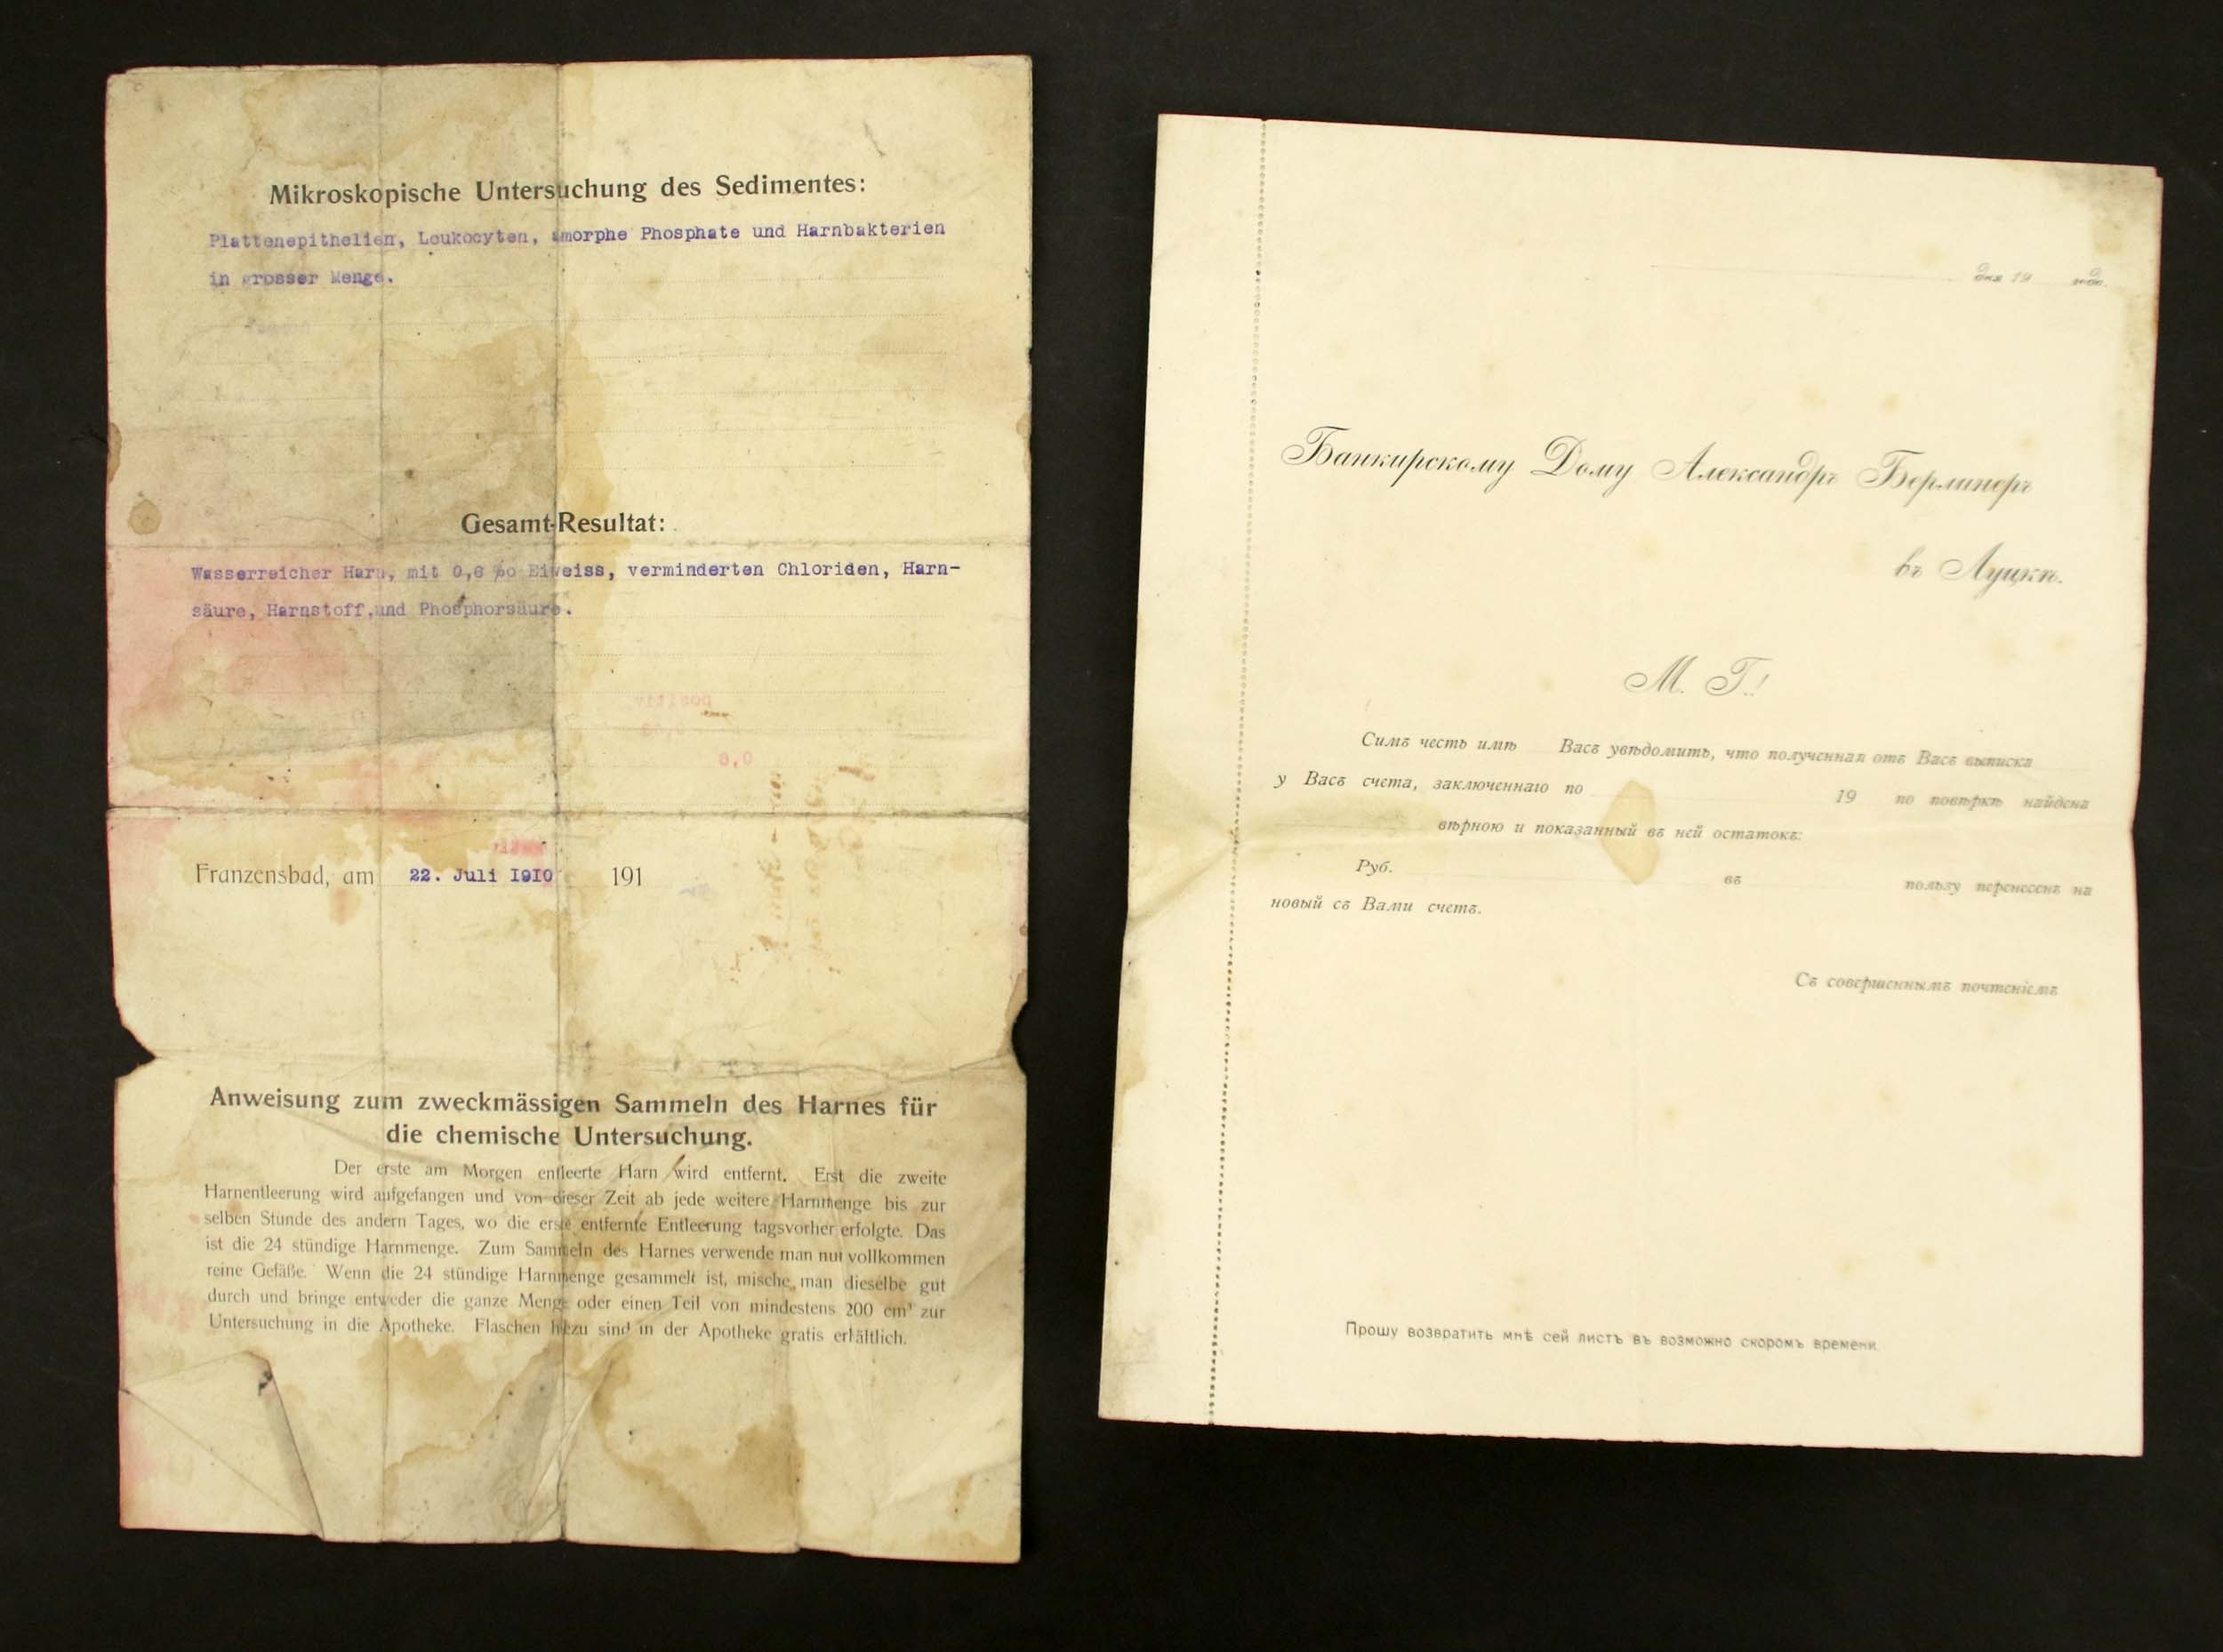 Mikroskopische Untersuchung des Sedimentes:
Plattenepithelien, Leukocyten, amorphe Phosphate und Harnbakterien
in grosser Menge.
Gesamt-Resultat:
Wasserreicher Harn, mit 0,6 ‰ Eiweiss, verminderten Chloriden, Harn-
säure, Harnstoff,und Phosphorsäure.
positiv
0,6
Franzensbad, am 22. Juli 1910 191
Anweisung zum zweckmässigen Sammeln des Harnes für
die chemische Untersuchung.
Der erste am Morgen entleerte Harn wird entfernt. Erst die zweite
Harnentleerung wird aufgefangen und von dieser Zeit ab jede weitere Harnmenge bis zur
selben Stunde des andern Tages, wo die erste entfernte Entleerung tagsvorher erfolgte. Das
ist die 24 stündige Harnmenge. Zum Sammeln des Harnes verwende man nur vollkommen
reine Gefäße. Wenn die 24 stündige Harnmenge gesammelt ist, mische man dieselbe gut
durch und bringe entweder die ganze Menge oder einen Teil von mindestens 200 cm³ zur
Untersuchung in die Apotheke. Flaschen hiezu sind in der Apotheke gratis erhältlich.
дня 19 года.
Банкирскому Дому Александръ Берлинеръ
въ Луцкѣ.
М. Г.!
Симъ честь имѣ Васъ увѣдомить, что полученная отъ Васъ выписка
у Васъ счета, заключеннаго по 19 по повѣркѣ найдена
вѣрною и показанный въ ней остатокъ:
Руб. въ пользу перенесенъ на
новый съ Вами счетъ.
Съ совершеннымъ почтеніемъ
Прошу возвратить мнѣ сей листъ въ возможно скоромъ времени